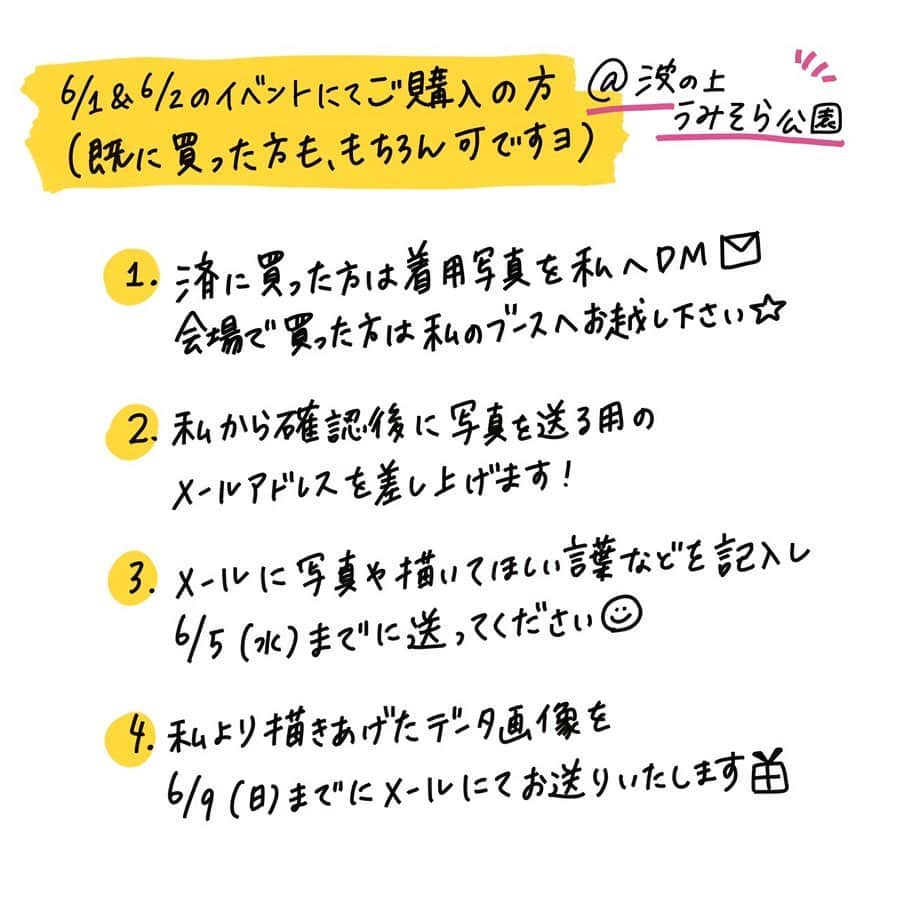 6/1&6/2のイベントにてご購入の方
(既に買った方も、もちろん可ですヨ)
@波の上
うみそら公園
1. 済に買った方は着用写真を私へDM
会場で買った方は私のブースへお越し下さい☆
2. 私から確認後に写真を送る用の
メールアドレスを差し上げます！
3. メールに写真や描いてほしい言葉などを記入し
6/5(水)までに送ってください
4. 私より描きあげたデータ画像を
6/9(日)までにメールにてお送りいたします